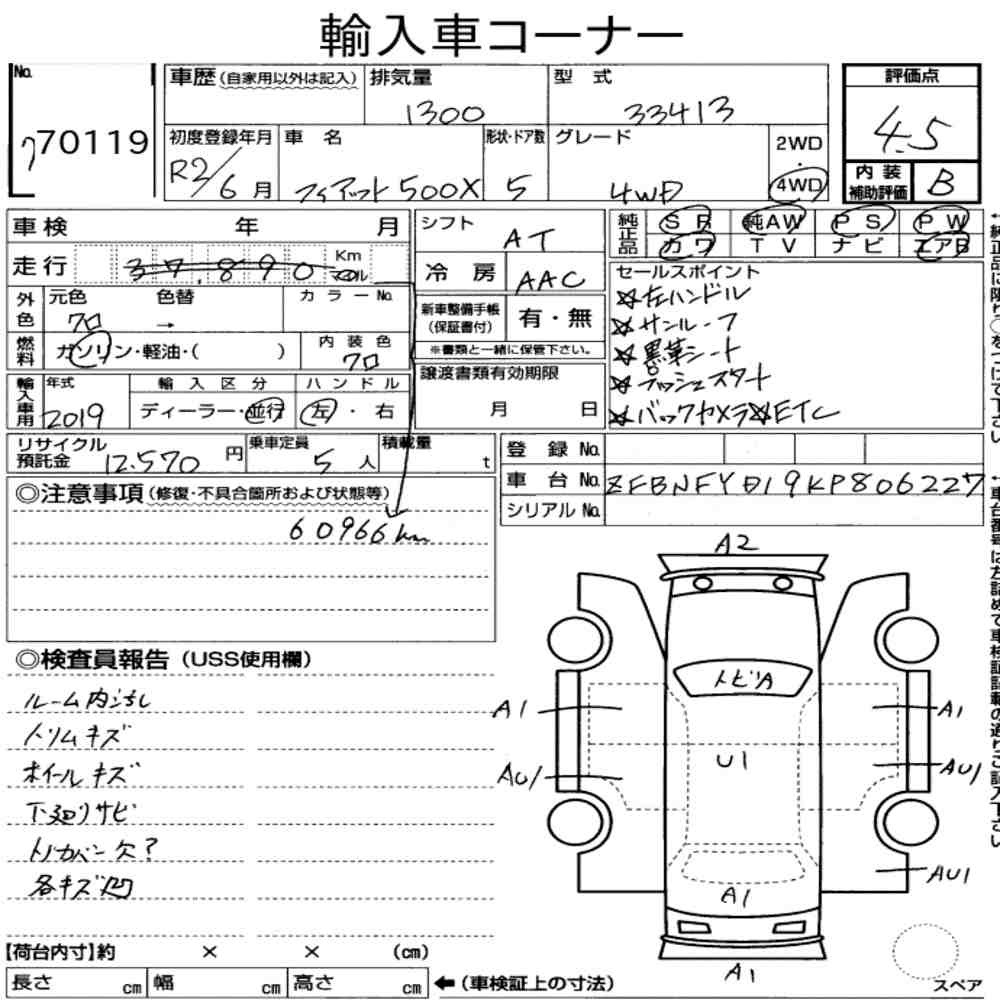 輸入車コーナー
No.
70119
車歴 (自家用以外は記入) 排気量 型 式
1300 33413
評価点
4.5
初度登録年月 車 名 形状・ドア数 グレード 2WD・4WD
R2/6月 フィアット500X 5 4WD
内装補助評価 B
車検 年 月
シフト AT
純正品 SR 純AW PS PW
カワ TV ナビ エアB
走行 37,890 Km マイル
冷房 AAC
外色 元色 色替 カラーNo.
70 →
新車整備手帳(保証書付) 有・無
※書類と一緒に保管下さい。
燃料 ガソリン・軽油・( ) 内装色
70
セールスポイント
☆左ハンドル
☆サンルーフ
☆黒革シート
☆プッシュスタート
☆バックカメラ☆ETC
譲渡書類有効期限
月 日
輸入車用 年式 輸入区分 ハンドル
2019 ディーラー・並行 左・右
リサイクル預託金 12.570円 乗車定員 5人 積載量 t
登録No.
車台No. ZFBNFYD19KP806227
シリアルNo.
◎注意事項(修復・不具合箇所および状態等)
60966km
◎検査員報告(USS使用欄)
ルーム内汚れ
トリムキズ
ホイールキズ
下廻りサビ
トノカバー欠?
各キズ凹
A2
トビA
A1 A1
U1
AU1 AU1
AU1
A1
A1
スペア
【荷台内寸】約 × × (cm)
長さ cm 幅 cm 高さ cm ←(車検証上の寸法)